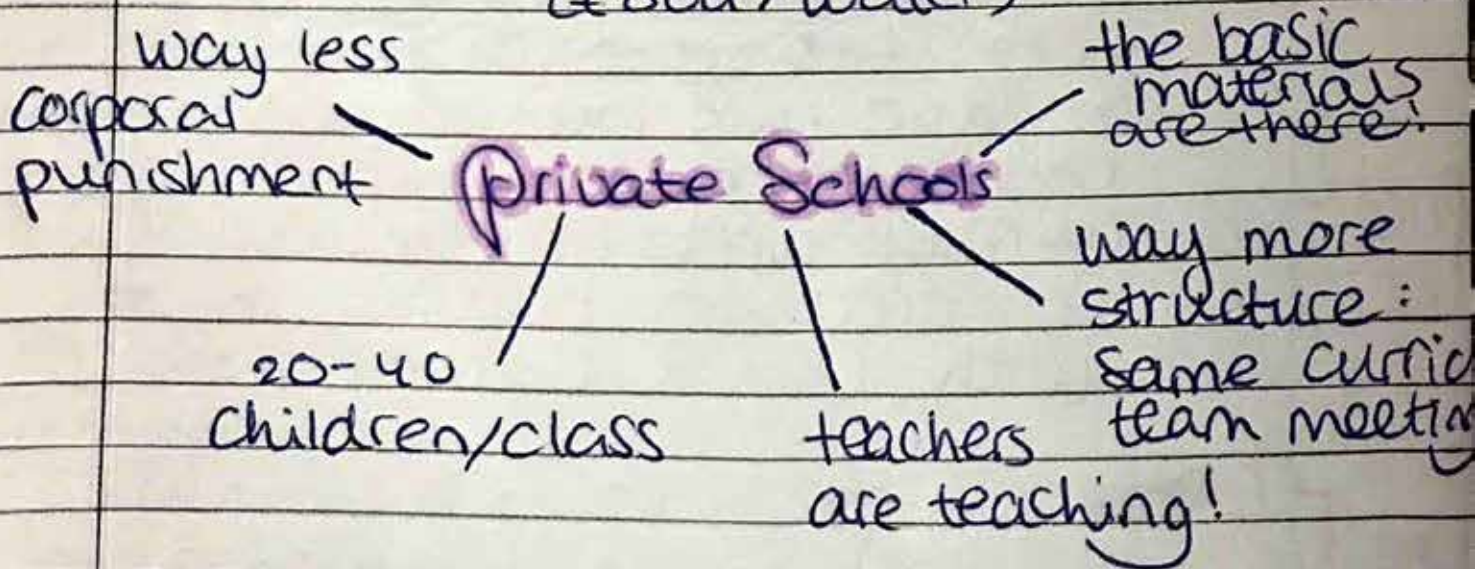 way less
corporal
punishment
the basic
materials
are there!
Private Schools
way more
structure:
same
team
20-40
children/class
teachers
are teaching!